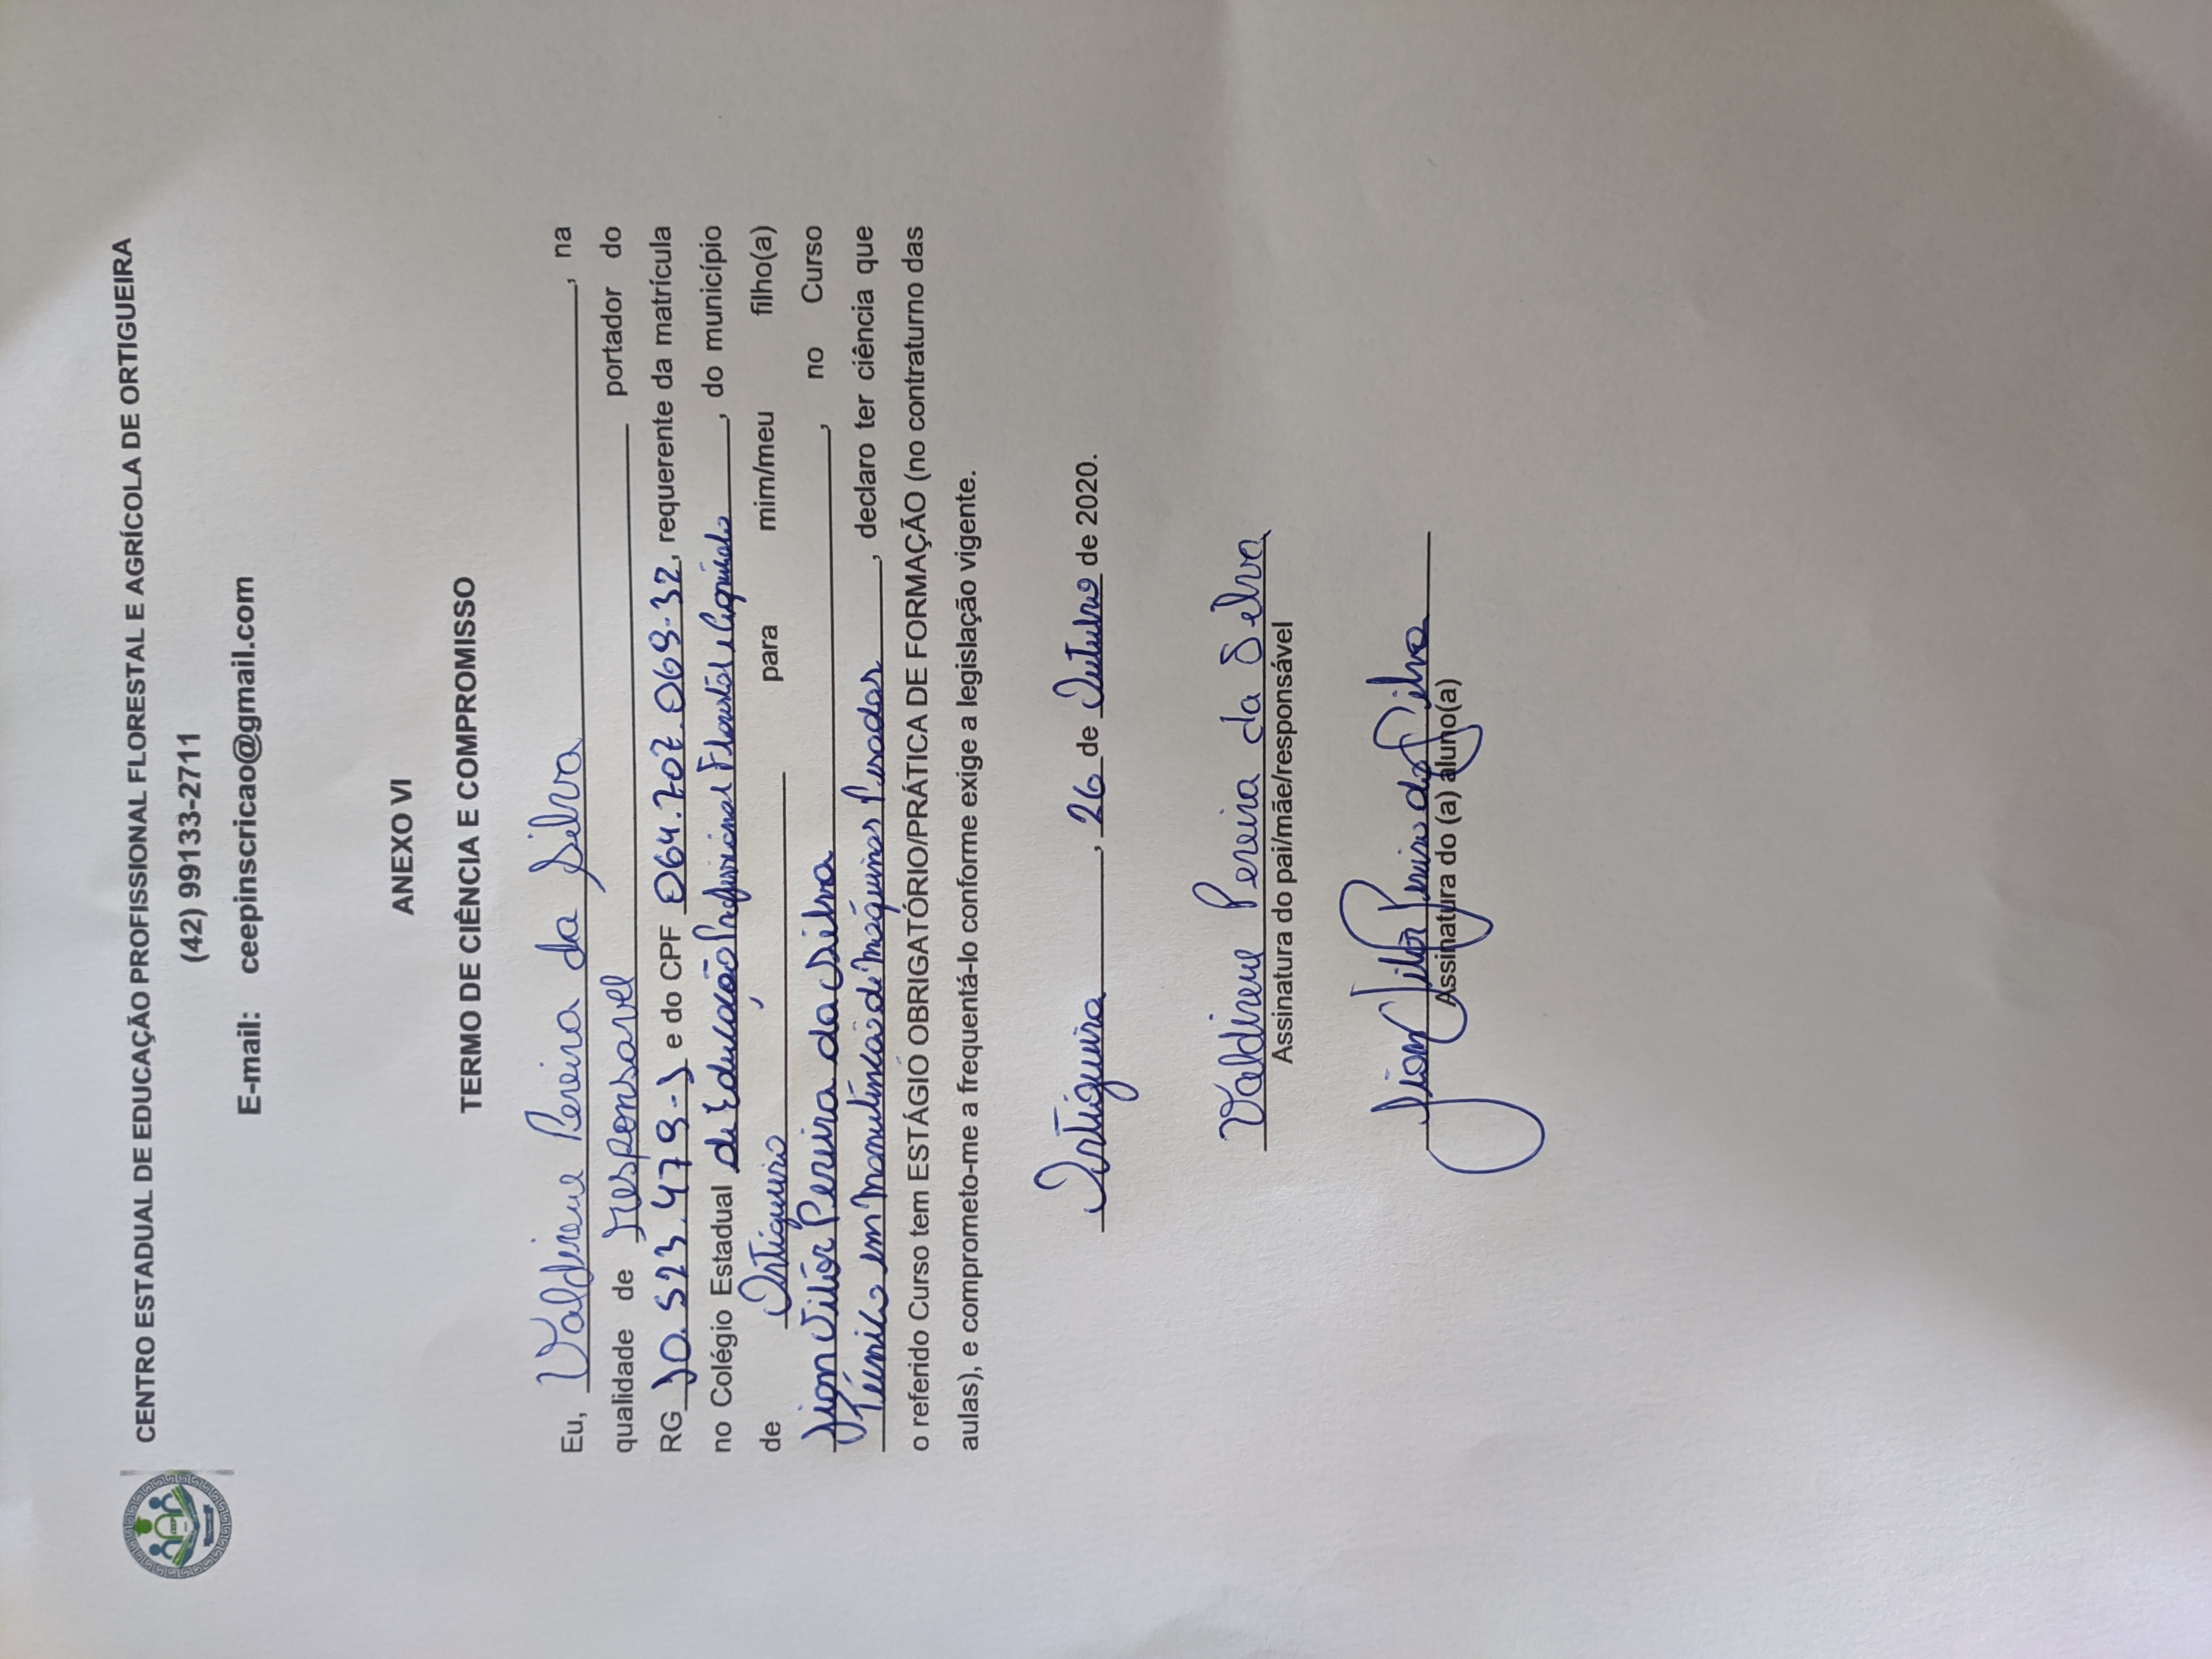 CENTRO ESTADUAL DE EDUCAÇÃO PROFISSIONAL FLORESTAL E AGRÍCOLA DE ORTIGUEIRA
(42) 99133-2711
E-mail: ceepinscricao@gmail.com
ANEXO VI
TERMO DE CIÊNCIA E COMPROMISSO
Eu, Valdirene Pereira da Silva, na
qualidade de responsavel portador do
RG 10.523.479-1 e do CPF 064.707.069-32, requerente da matrícula
no Colégio Estadual de Educação Profissional Florestal e Agrícola, do município
de Ortigueira para mim/meu filho(a)
Jion Vitór Pereira da Silva, no Curso
Técnico em Manutenção de Máquinas Pesadas, declaro ter ciência que
o referido Curso tem ESTÁGIO OBRIGATÓRIO/PRÁTICA DE FORMAÇÃO (no contraturno das
aulas), e comprometo-me a frequentá-lo conforme exige a legislação vigente.
Ortigueira, 26 de Outubro de 2020.
Valdirene Pereira da Silva
Assinatura do pai/mãe/responsável
Jion Vitór Pereira da Silva
Assinatura do (a) aluno(a)